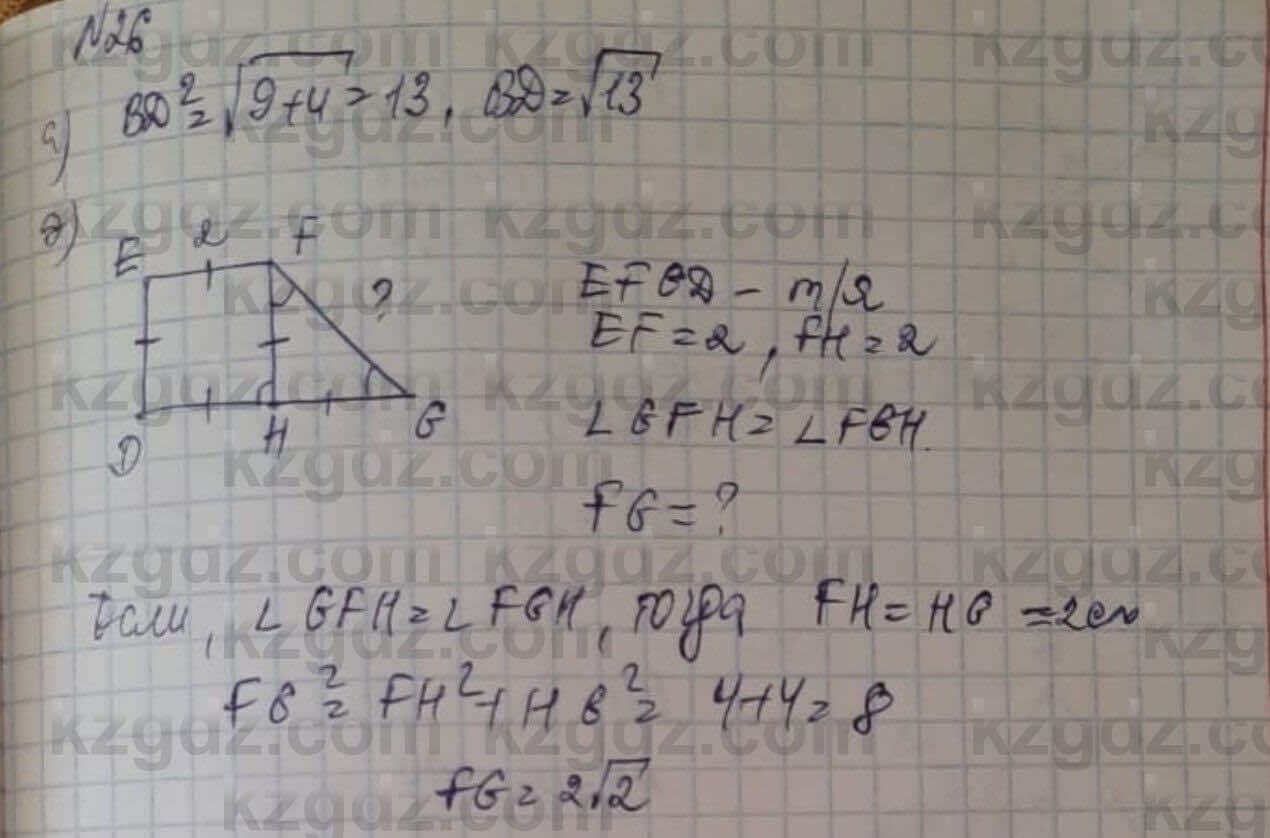 N26
а) BD²=√9+4=13, BD=√13
д)
E 2 F
?
D H G
EFGD - т/я
EF=2, FH=2
∠GFH=∠FGH.
FG=?
Если, ∠GFH=∠FGH, тогда FH=HG=2см
FG²=FH²+HG²=4+4=8
FG=2√2
kzgdz.com